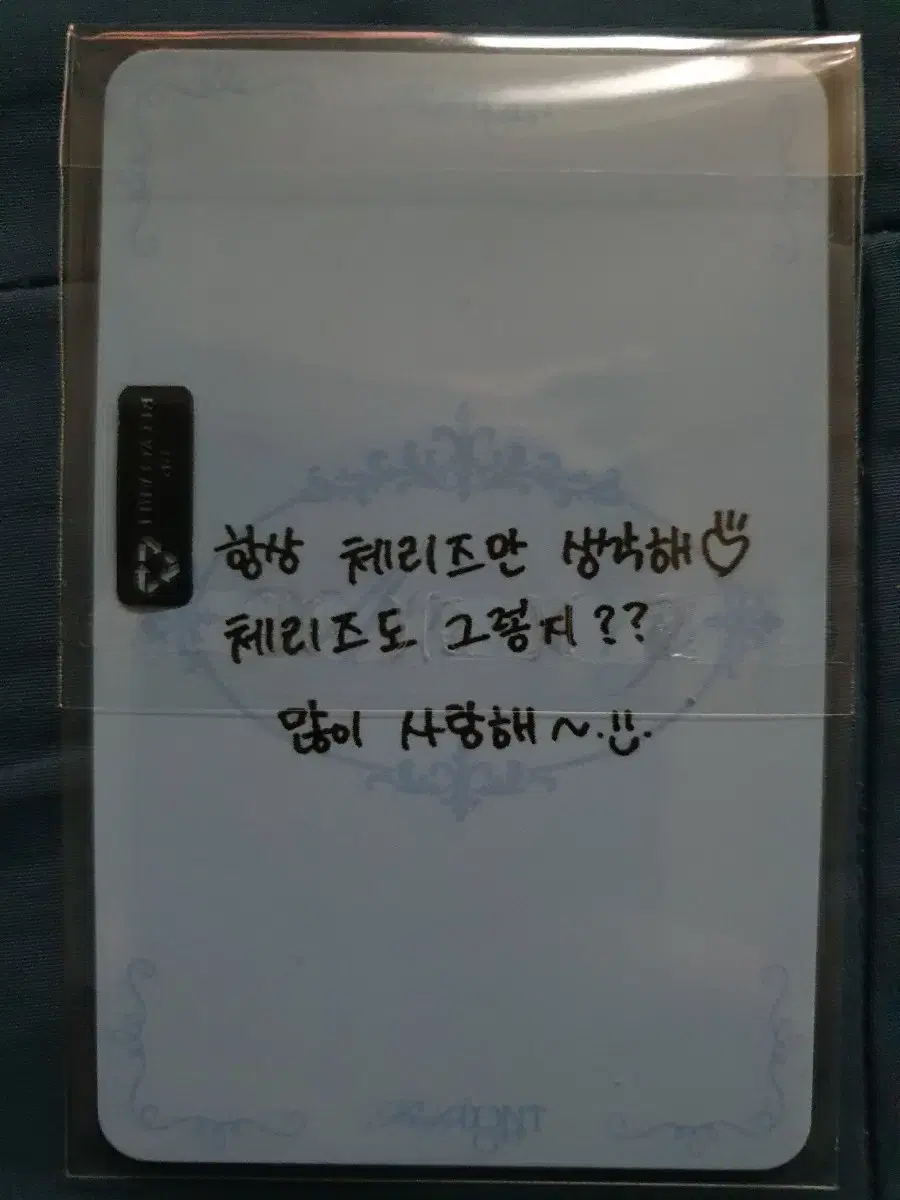 항상 체리즈만 생각해♡
체리즈도 그렇지??
많이 사랑해~